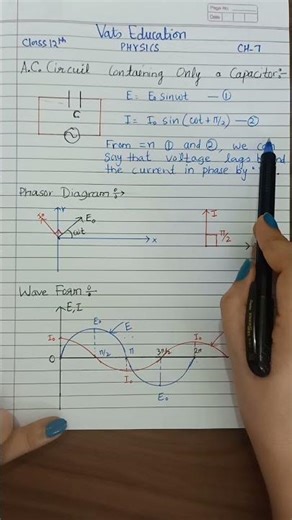 Page No.
Date
Vats Education
Class 12th
PHYSICS
CH-7
A.C. Circuit Containing Only a Capacitor:-
C
E = E₀ sinωt — ①
I = I₀ sin (ωt + π/2) — ②
From =n ① and ②, we can
say that voltage lags
the current in phase by
Phasor Diagram:-
Y
I₀
E₀
ωt
X
I
π/2
Wave Form:-
E, I
E₀
E
I₀
I₀
O
π/2
π
3π/2
2π
I₀
E₀